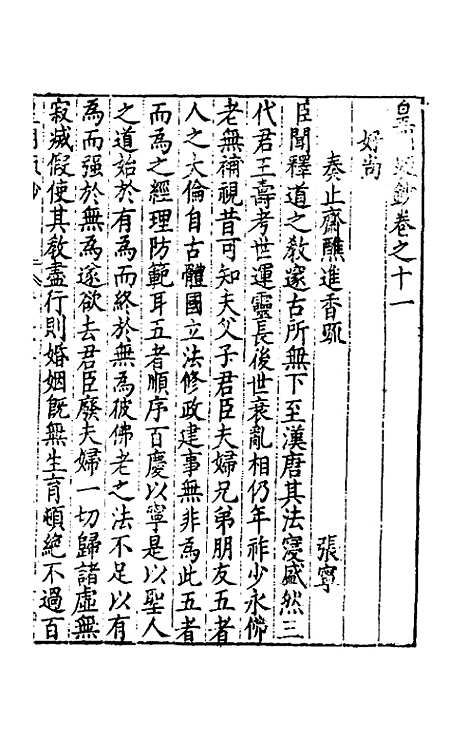 皇明疏鈔卷之十一
好尚
奏止齋醮進香疏 張寧
臣聞釋道之教邃古所無下至漢唐其法寖盛然三
代君王壽考世運靈長後世衰亂相仍年祚少永佛
老無補視昔可知夫父子君臣夫婦兄弟朋友五者
人之大倫自古體國立法修政建事無非為此五者
而為之經理防範耳五者順序百慶以寧是以聖人
之道始於有為而終於無為彼佛老之法不足以有
為而强於無為遂欲去君臣廢夫婦一切歸諸虛無
寂滅假使其教盡行則婚姻既無生育頓絶不過百